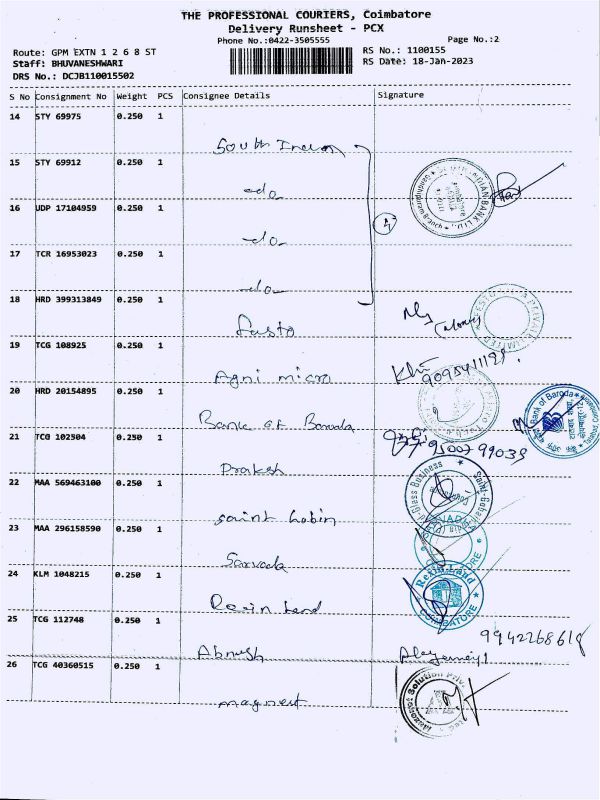 THE PROFESSIONAL COURIERS, Coimbatore
Delivery Runsheet - PCX
Phone No.:0422-3505555
Page No.:2
Route: GPM EXTN 1 2 6 8 ST
RS No.: 1100155
Staff: BHUVANESHWARI
RS Date: 18-Jan-2023
DRS No.: DCJB110015502
S No Consignment No Weight PCS Consignee Details Signature
14 STY 69975 0.250 1
South Indian
15 STY 69912 0.250 1
-do-
16 UDP 17104959 0.250 1
4
-do-
17 TCR 16953023 0.250 1
-do-
18 HRD 399313849 0.250 1
Festo
19 TCG 108925 0.250 1
Agni micro
9095411198
20 HRD 20154895 0.250 1
Bank of Baroda
Bank of Baroda
21 TCG 102504 0.250 1
95007 99033
Prakash
22 MAA 569463100 0.250 1
Glass Business
saint Gobin
23 MAA 296158590 0.250 1
Sarvada
24 KLM 1048215 0.250 1
Rexin Land
COIMBATORE
Rexin Land
25 TCG 112748 0.250 1
9942268618
26 TCG 40360515 0.250 1
magnest